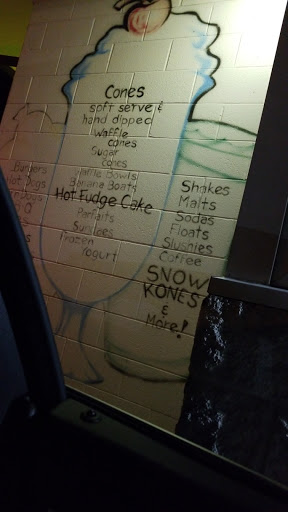 Cones
soft serve &
hand dipped
Waffle
cones
Sugar
cones
Waffle Bowls
Banana Boats
Hot Fudge Cake
Parfaits
Sundaes
Frozen
Yogurt
Burgers
Hot Dogs
Shakes
Malts
Sodas
Floats
Slushies
Coffee
SNOW
KONES
&
More!